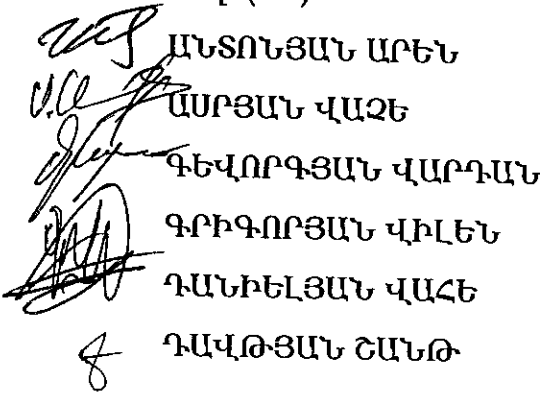 ԱՆՏՈՆՅԱՆ ԱՐԵՆ
ԱՍՐՅԱՆ ՎԱԶԵ
ԳԵՎՈՐԳՅԱՆ ՎԱՐԴԱՆ
ԳՐԻԳՈՐՅԱՆ ՎԻԼԵՆ
ԴԱՆԻԵԼՅԱՆ ՎԱՀԵ
ԴԱՎԹՅԱՆ ՇԱՆԹ